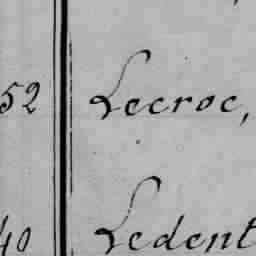 52 Lecroc,
40 Ledent